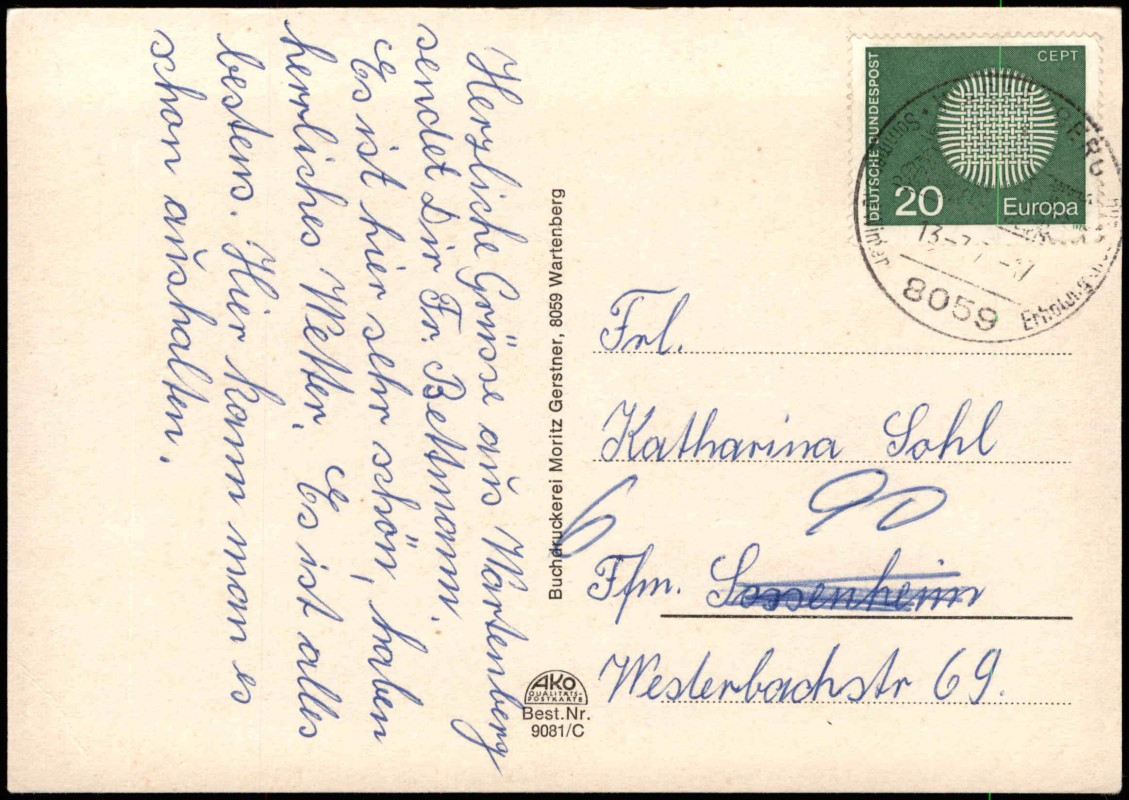 Herzliche Grüsse aus Wartenberg
sendet Dir Fr. Bettmann.
Es ist hier sehr schön, haben
herrliches Wetter. Es ist alles
bestens. Hier kann man es
schon aushalten.
Buchdruckerei Moritz Gerstner, 8059 Wartenberg
AKO
QUALITÄTS-
POSTKARTE
Best.Nr.
9081/C
CEPT
DEUTSCHE BUNDESPOST
20 Europa
8059
Frl.
Katharina Sohl
6 90
Ffm. Sossenheim
Westerbachstr 69.